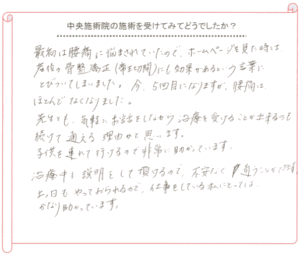 中央施術院の施術を受けてみてどうでしたか？
最初は腰痛に悩まされていたので、ホームページを見た時は、
産後の骨盤矯正(帝王切開)にも効果があるという言葉に
とびついてしまいました。今、5回目になりますが、腰痛は
ほとんどなくなりました。
先生とも、気軽にお話をしながら治療を受けることが出来るのも
続けて通える理由かと思います。
子供を連れて行けるので非常に助かっています。
治療中も説明をして頂けるので、不安なく通うことができ、
土日もやっておられるので、仕事をしている私にとっては、
かなり助かっています。